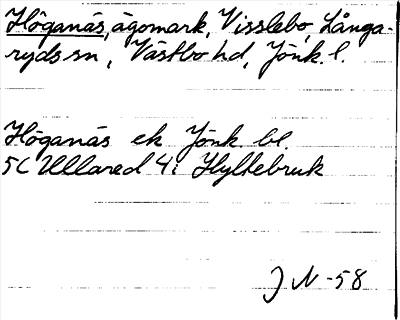 Höganäs, ägomark, Visslebo, Långa-
ryds sn, Västbo hd, Jönk. l.
Höganäs ek Jönk. bl.
5C Ullared 4i Hyltebruk
J N -58